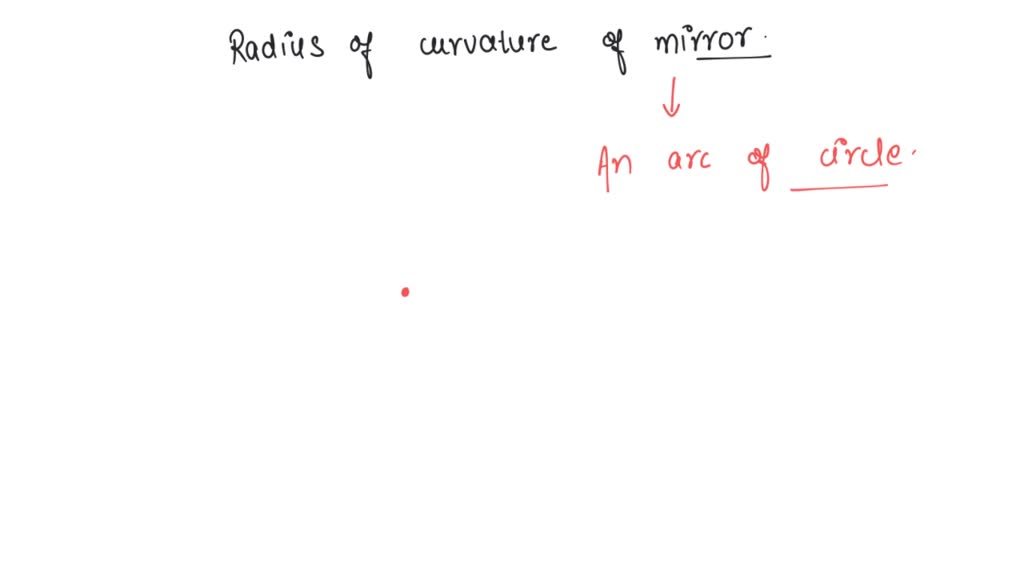 Radius of curvature of mirror.
An arc of circle.